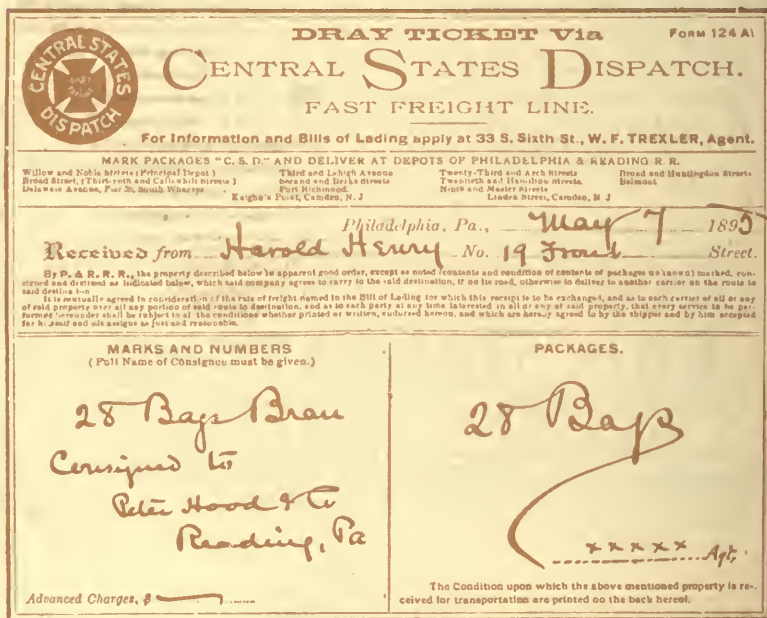 DRAY TICKET Via FORM 124 A1
CENTRAL STATES DISPATCH
CENTRAL STATES DISPATCH.
FAST FREIGHT LINE.
For Information and Bills of Lading apply at 33 S. Sixth St., W. F. TREXLER, Agent.
MARK PACKAGES "C. S. D." AND DELIVER AT DEPOTS OF PHILADELPHIA & READING R. R.
Willow and Noble Streets (Principal Depot) Third and Lehigh Avenue Twenty-Third and Arch Streets Broad and Huntingdon Streets
Broad Street, (Thirteenth and Callowhill Streets) Second and Berks Streets Twentieth and Hamilton Streets Belmont
Delaware Avenue, Pier 25, South Wharves Port Richmond Ninth and Master Streets
Kaighn's Point, Camden, N. J Linden Street, Camden, N J
Philadelphia, Pa., May 7 1895
Received from Harold Henry No. 19 Front Street.
By P. & R. R. R., the property described below in apparent good order, except as noted (contents and condition of contents of packages unknown) marked, con-
signed and destined as indicated below, which said company agrees to carry to the said destination, if on its road, otherwise to deliver to another carrier on the route to
said destination
It is mutually agreed in consideration of the rate of freight named in the Bill of Lading for which this receipt is to be exchanged, and as to each carrier of all or any
of said property over all or any portion of said route to destination, and as to each party at any time interested in all or any of said property, that every service to be per-
formed hereunder shall be subject to all the conditions whether printed or written, endorsed hereon, and which are hereby agreed to by the shipper and by him accepted
for himself and his assigns as just and reasonable.
MARKS AND NUMBERS
(Full Name of Consignee must be given.)
28 Bags Bran
Consigned to
Peter Hood & Co
Reading, Pa
Advanced Charges, $
PACKAGES.
28 Bags
x x x x x Agt,
The Condition upon which the above mentioned property is re-
ceived for transportation are printed on the back hereof.